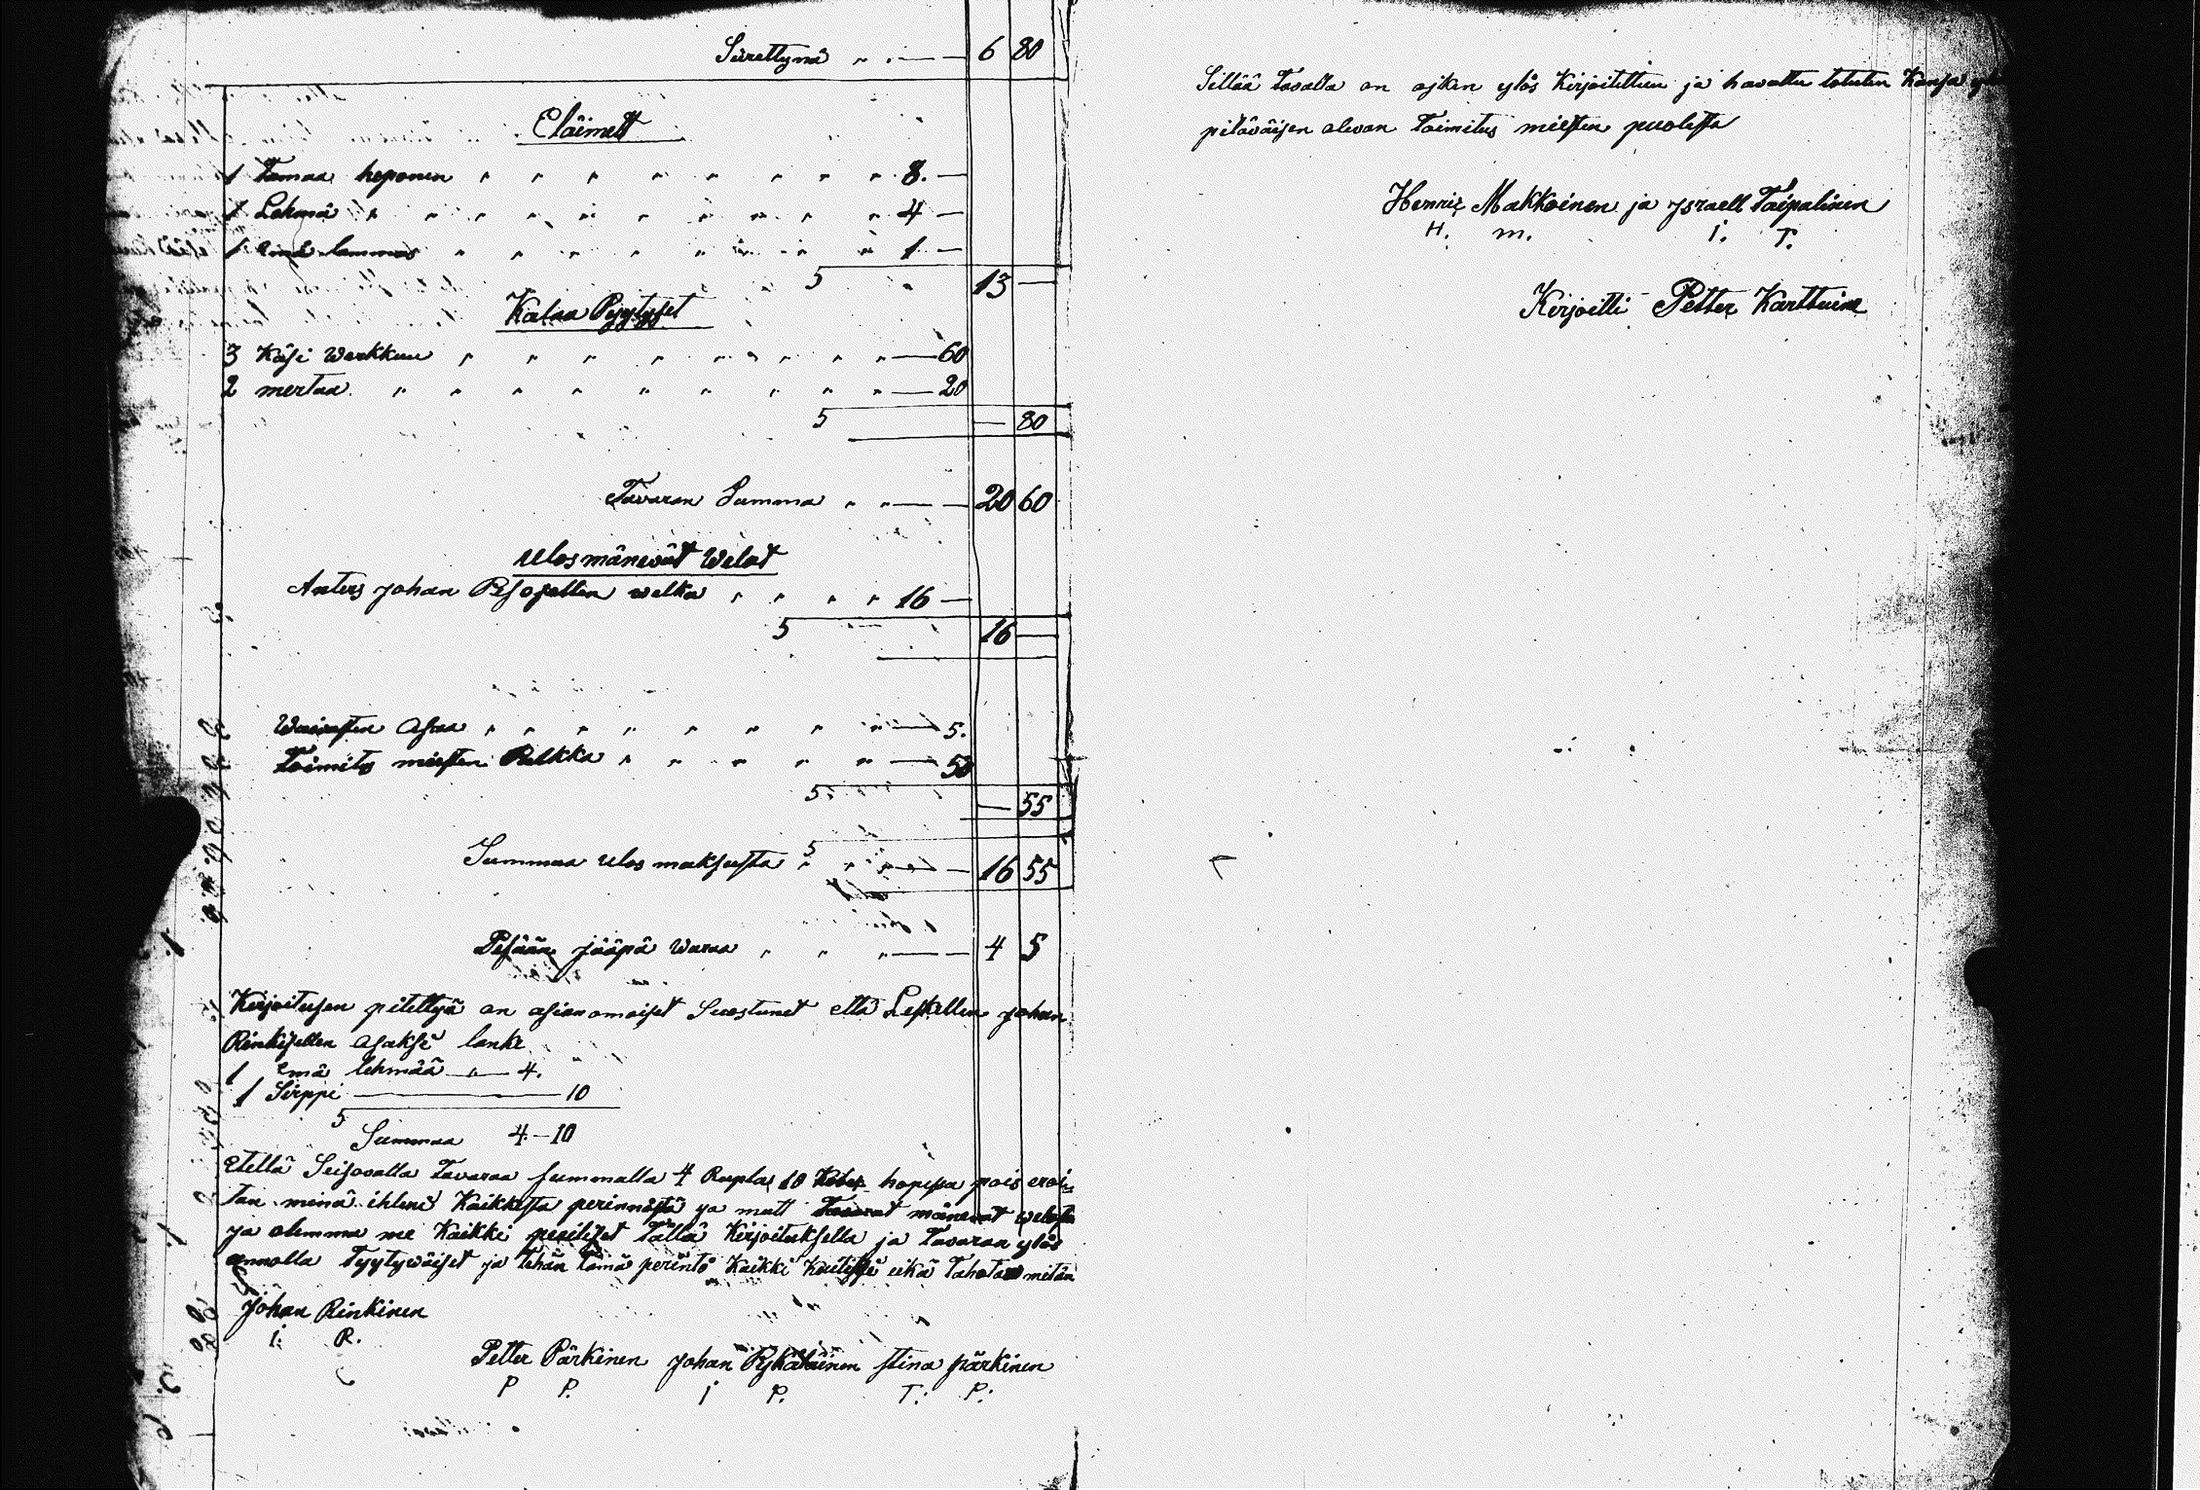 Siirettynä „ „ — — 6 80
Eläimett
1 Tamaa heponen „ „ „ „ „ „ „ „ 8. —
1 Lehmä „ „ „ „ „ „ „ „ „ 4 —
1 Emä lammas „ „ „ „ „ „ „ „ 1 —
5 13 —
Kalaa Pyytyset
3 Käsi Werkkuu „ „ „ „ „ „ „ „ — 60
2 mertaa „ „ „ „ „ „ „ „ „ — 20
5 — 80
Tavaran Summa „ „ — — 20 60
Ulosmänevät Welat
Anters Johan Pesosellen welka „ „ „ „ 16 —
5 16 —
Waivasten Asaa „ „ „ „ „ „ „ „ — 5.
Toimitus miesten Palkka „ „ „ „ „ — 50
5 — 55
Summaa ulos maksusta „ „ — — 16 55
5
Pesään jääpä Waraa „ „ „ — — 4 5
Kirjoitusen pitettyä on asianomaiset Suostunet että Leskellen Johan
Rinkisellen Asaksi lanke
1 Emä lehmää „ — 4.
1 Sirppi — 10
5
Summaa 4 – 10
Etellä Seisovalla Tavaraa summalla 4 Rupla 10 hopesa pois eroi=
tan minä ihleni Kaikkesta perinnöstä ja mutt Tavarat mänevat welasta
ja olemma me Kaikki Tällä Kirjoituksella ja Tavaran ylös
annolla Tyytywäiset ja Tehän Tämä perintö Kaikki eikä Tahota mitän
Johan Rinkinen
I: R.
Petter Pärkinen Johan Pykäläinen Stina pärkinen
P P. i P. T: P:
Sillää Tavalla on ajken ylös Kirjoitettuu ja havattu totuten Kansa
pitäväisen olevan Toimitus miesten puolesta
Henric Makkoinen ja Israell Taipalinen
H. m. i. T.
Kirjoitti Petter Karttuine